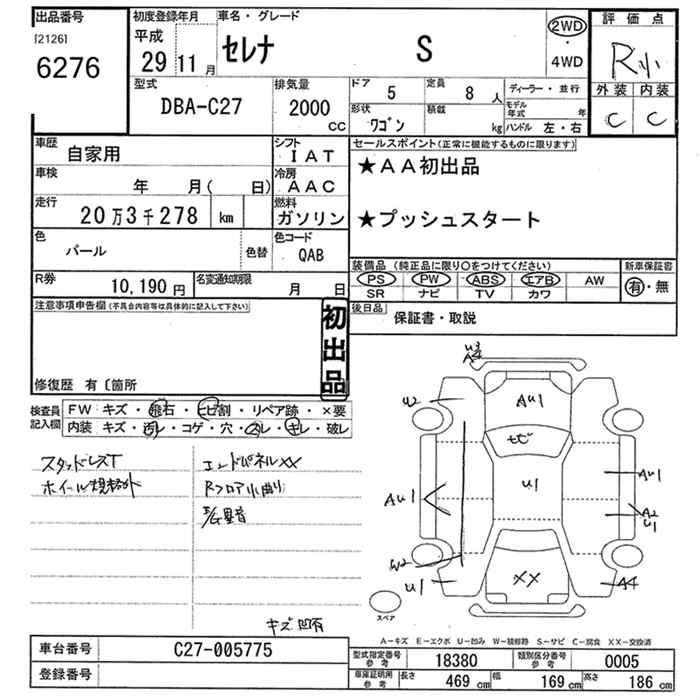 出品番号 初度登録年月 車名・グレード 2WD 評価点
[2126] 平成
6276 29 11月 セレナ S ・ 4WD R小
型式 排気量 ドア 5 定員 8人 ディーラー・並行 外装 内装
DBA-C27 2000 CC 形状 ワゴン 積載 kg モデル年式 年 C C
ハンドル 左・右
車歴 自家用 シフト IAT セールスポイント(正常に機能するものに限ります)
車検 年 月( 日) 冷房 AAC ★AA初出品
走行 20万3千278 km 燃料 ガソリン ★プッシュスタート
色 パール 色替 色コード QAB
装備品(純正品に限り○をつけてください) 新車保証書
R券 10,190円 名変通知期限 月 日 PS PW ABS エアB AW 有・無
SR ナビ TV カワ
注意事項申告欄(不具合内容等は具体的に記入して下さい) 初出品 後日品 保証書・取説
修復歴 有〔箇所
検査員記入欄 FW キズ・飛石・ヒビ割・リペア跡・×要
内装 キズ・汚レ・コゲ・穴・スレ・キレ・破レ
スタッドレスT エンドパネルXX
ホイール規格外 Rフロア小曲り
キズ凹有
U3
A4
U2 AU1
ヒビ
AU1 U1 AU1
A2
U1
W2
U1 XX A4
スペア
A-キズ E-エクボ U-凹み W-補修跡 S-サビ C-腐食 XX-交換済
車台番号 C27-005775 型式指定番号 参考 18380 類別区分番号 参考 0005
登録番号 車庫証明用 参考 長さ 469cm 幅 169cm 高さ 186cm